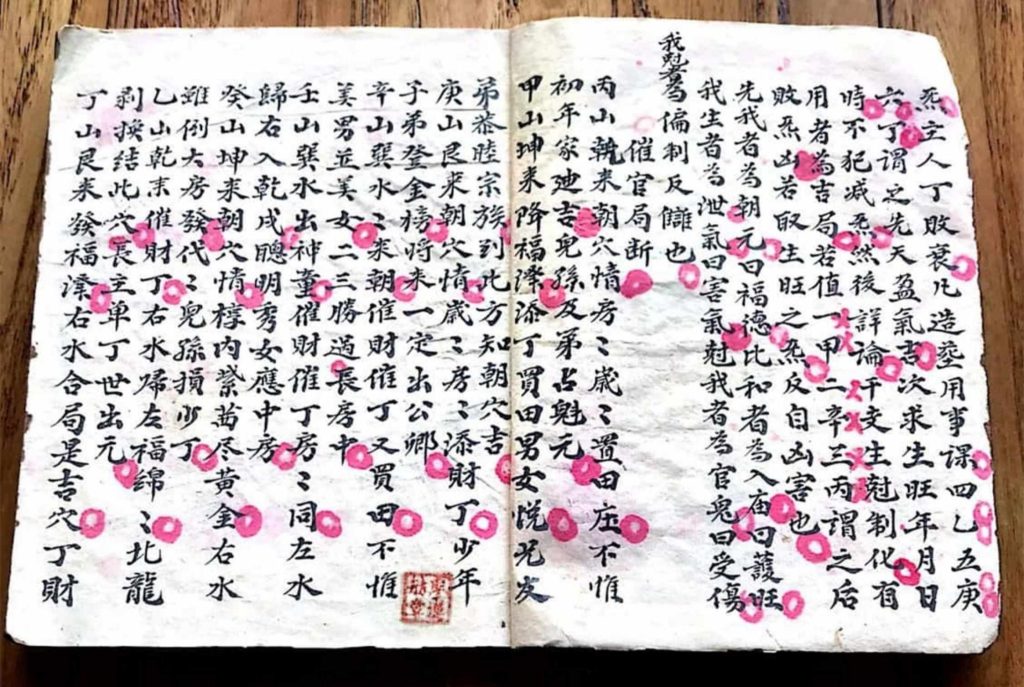 炁主人丁敗衰凡造塟用事課四乙五庚
六丁謂之先天盈氣吉次求生旺年月日
時不犯减炁然後詳論干支生尅制化有
用者為吉局若值一甲二辛三丙謂之后
敗炁凶若取生旺之炁反自凶害也
先我者為朝元曰福德比和者為入庙曰護旺
我生者為泄氣曰害氣尅我者為官鬼曰受傷
我尅者為偏制反讎也
催官局断
丙山朝來朝穴情房〻歲〻置田庄不惟
初年家廸吉兒孫及弟占魁元
甲山坤来降福澤添丁買田男女悦兄友
弟恭睦宗族到此方知朝穴吉
庚山艮来朝穴情歲〻房〻添財丁少年
子弟登金榜將来一定出公卿
辛山巽水〻来朝催財催丁又買田不惟
美男並美女二三勝過長房中
壬山巽水出神童催財催丁房〻同左水
歸右入乾戌聰明秀女應中房
癸山坤来朝穴情椁内紫茜尽黄金右水
雖倒大房發代〻兒孫損少丁
乙山乾亥催財丁右水歸左福綿〻北龍
剥换結此穴長主单丁世出元
丁山艮来發福澤右水合局是吉穴丁財